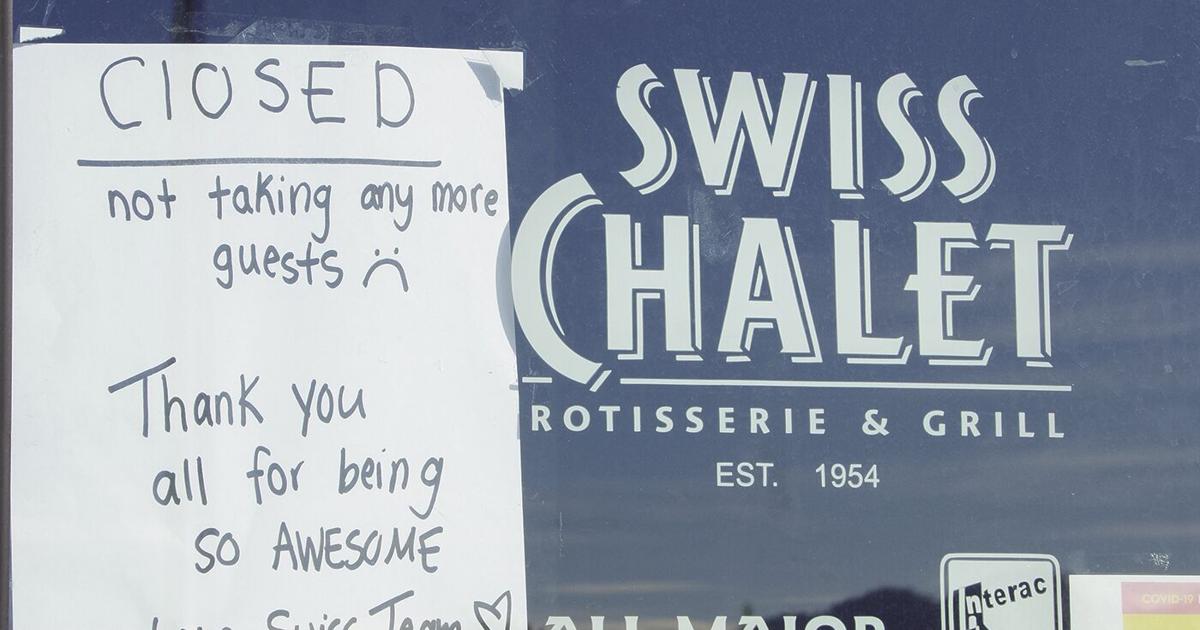 ClOSED
not taking any more
guests :(
Thank you
all for being
SO AWESOME
Swiss Team ♡
SWISS
CHALET
ROTISSERIE & GRILL
EST. 1954
ALL MAJOR
Interac
COVID-19